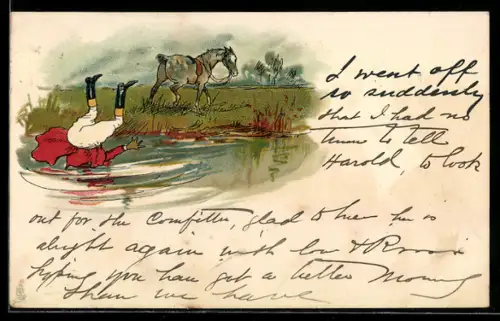 I went off
so suddenly
that I had no
time to tell
Harold, to look
out for the Comfitter, glad to hear he is
alright again with love &
hoping you have got a better Morning
than we have